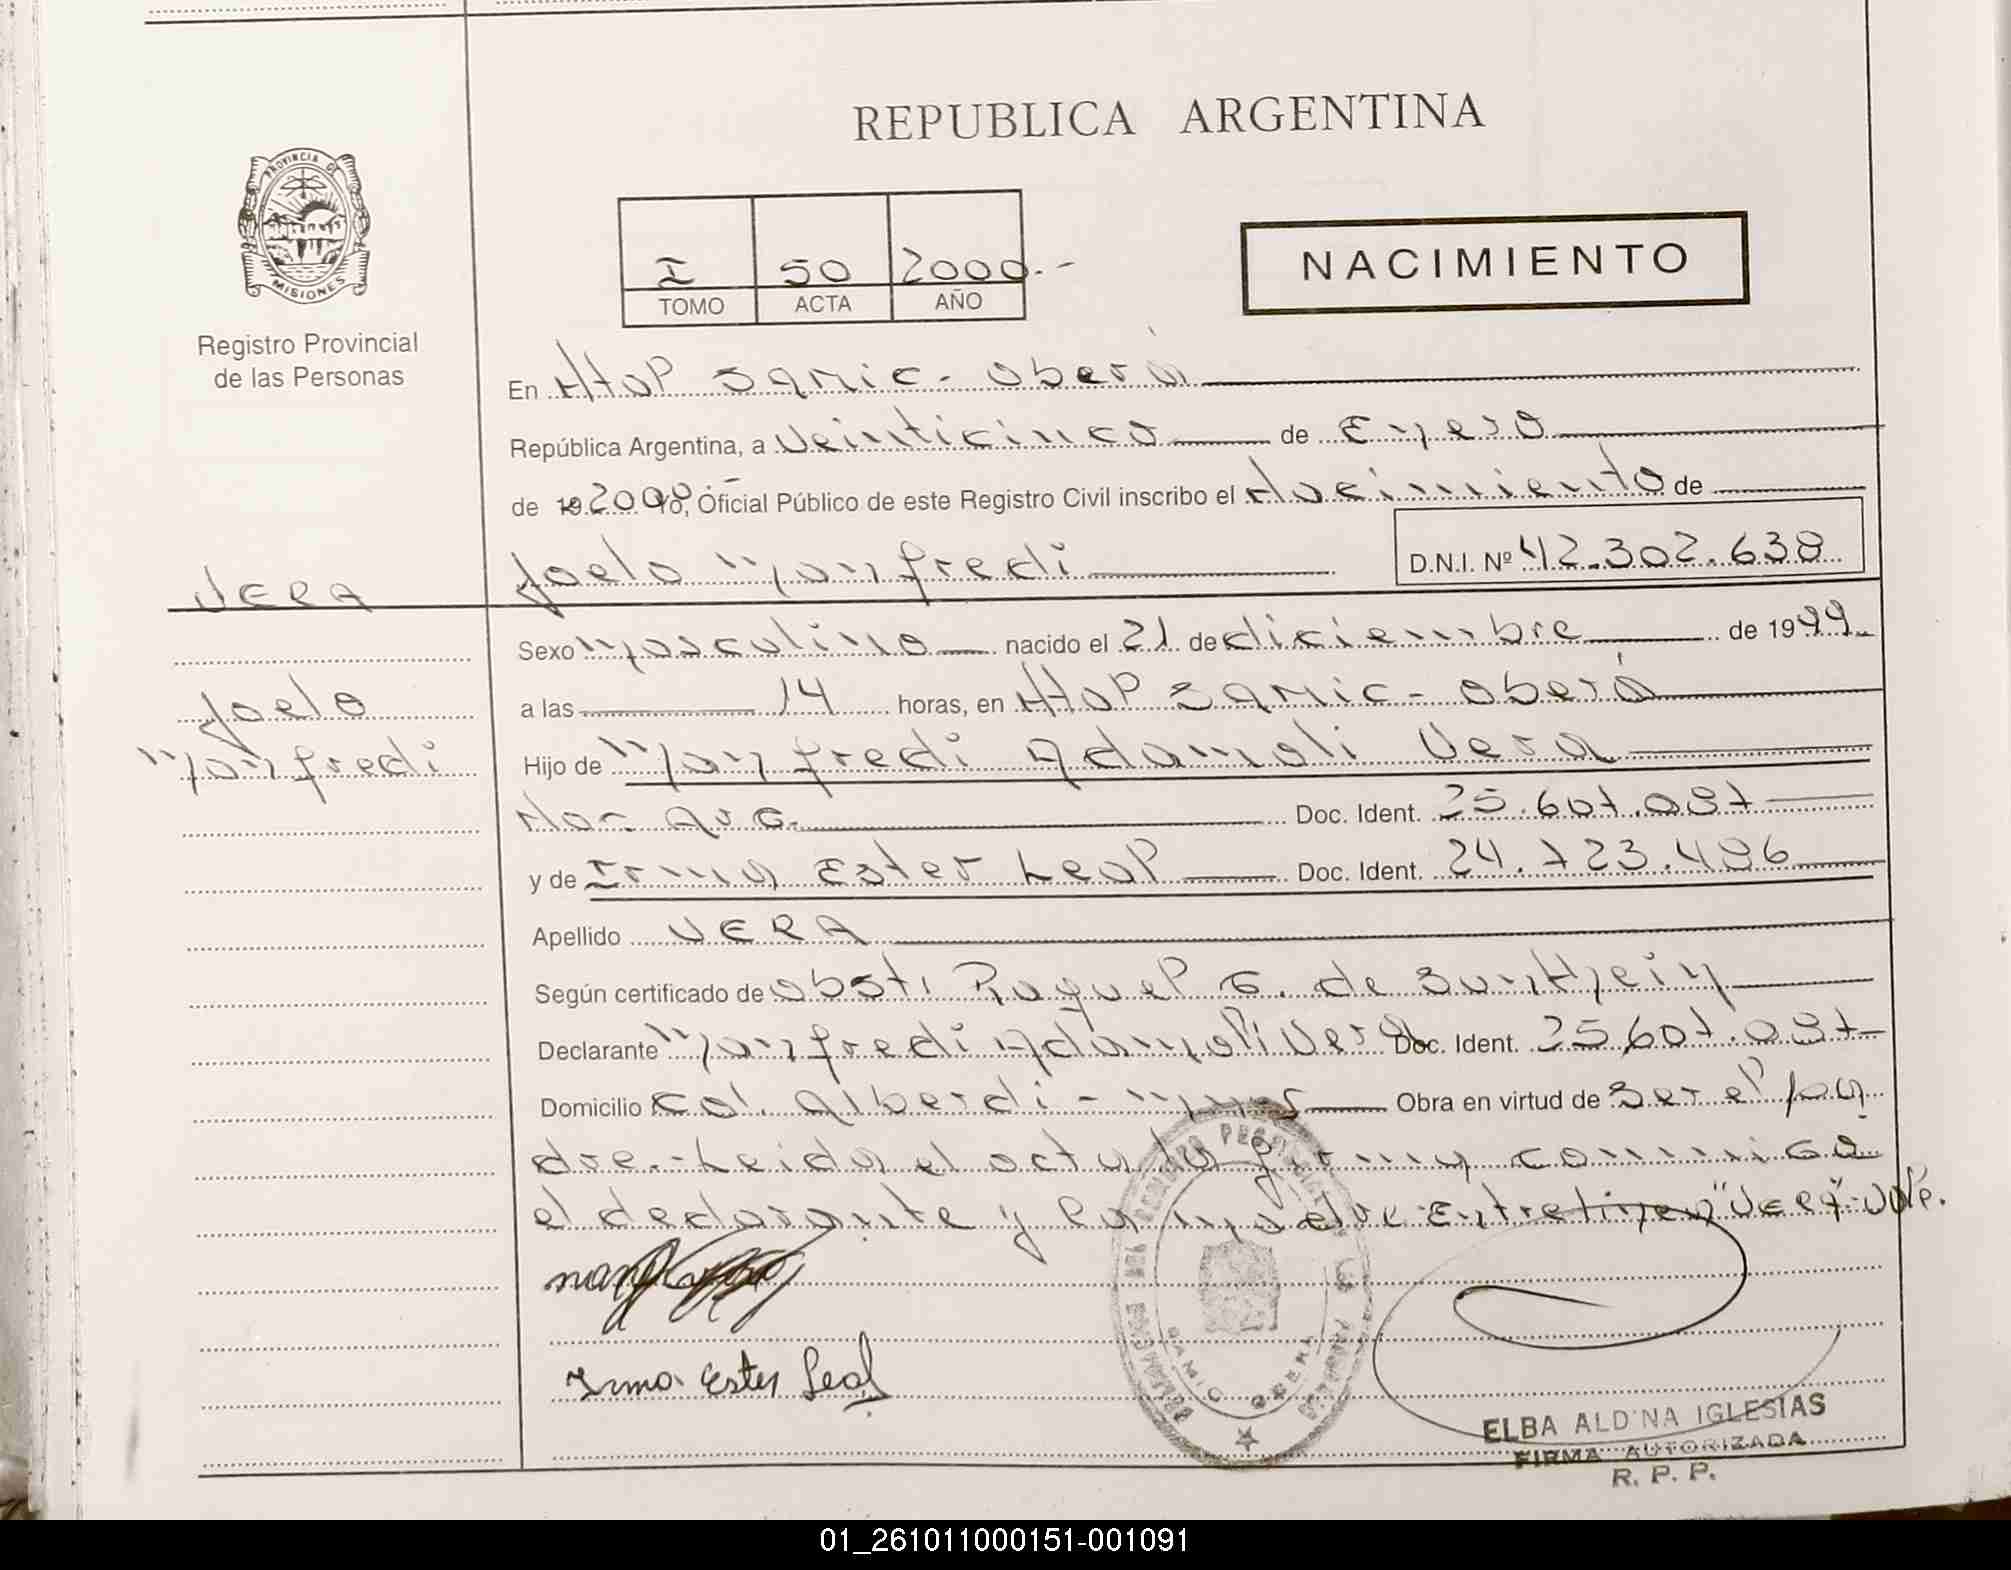 REPUBLICA ARGENTINA
PROVINCIA DE
MISIONES
Registro Provincial
de las Personas
I 50 2000.-
TOMO ACTA AÑO
NACIMIENTO
En Hosp Samic - Oberá
República Argentina, a Veinticinco de Enero
de 19 2000 Yo, Oficial Público de este Registro Civil inscribo el Nacimiento de
Joelo Manfredi D.N.I. Nº 42.302.638
VERA
Joelo
Manfredi
Sexo Masculino nacido el 21 de diciembre de 1999
a las 14 horas, en Hosp Samic - Oberá
Hijo de Manfredi Adamoli Vera
Nac. Arg. Doc. Ident. 25.607.087
y de Irma Ester Leal Doc. Ident. 24.723.496
Apellido VERA
Según certificado de Obst. Raquel G. de
Declarante Manfredi Adamoli Vera Doc. Ident. 25.607.087
Domicilio Col. Alberdi - Mnes Obra en virtud de ser el pa
dre.- Leida el acta la firma conmigo
el declarante y la madre Entrelineas "VERA" Vale.
Irma Ester Leal
SAMIC OBERA
ELBA ALDINA IGLESIAS
FIRMA AUTORIZADA
R. P. P.
01_261011000151-001091